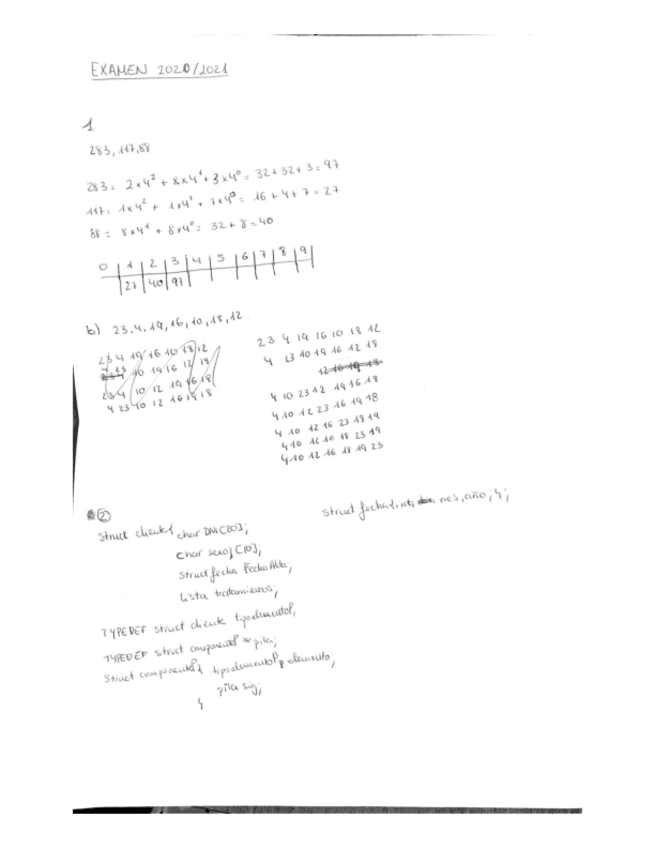 EXAMEN 2020/2021
1
283, 117,88
283 = 2x4² + 8x4¹ + 3x4⁰ = 32+32+3 = 97
117 = 1x4² + 1x4¹ + 7x4⁰ = 16+4+7 = 27
88 = 8x4¹ + 8x4⁰ = 32+8 = 40
0 | 1 | 2 | 3 | 4 | 5 | 6 | 7 | 8 | 9 |
27 | 40 | 97
b) 23, 4, 19, 16, 10, 18, 12
23 4 19 16 10 18 12
4 23 10 19 16 12 18
23 4 10 12 19 16 18
4 23 10 12 16 19 18
23 4 19 16 10 18 12
4 23 10 19 16 12 18
12 16 19 18
4 10 23 12 19 16 18
4 10 12 23 16 19 18
4 10 12 16 23 18 19
4 10 12 16 18 23 19
4 10 12 16 18 19 23
2
struct fecha{ int mes, año; };
Struct cliente{ char DNI[20];
char sexo[10];
Struct fecha FechaAlta;
Lista tratamientos;
TYPEDEF struct cliente tipoelementoP;
TYPEDEF struct componenteP * pila;
Struct componenteP{ tipoelementoP elemento;
pila sig;
}